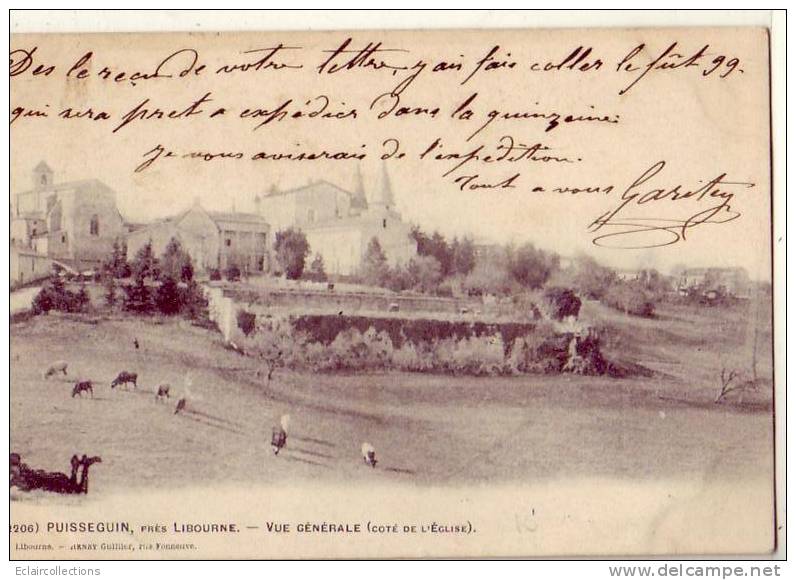 Des le reçu de votre lettre, j'ai fais coller le fût 99.
qui sera pret a expédier dans la quinzeine.
je vous aviserais de l'expédition.
Tout a vous
2206) PUISSEGUIN, PRÈS LIBOURNE. — VUE GÉNÉRALE (COTÉ DE L'ÉGLISE).
Libourne. — HENRY Guillier, rue Fonneuve.
Eclaircollections
http://www.delcampe.net